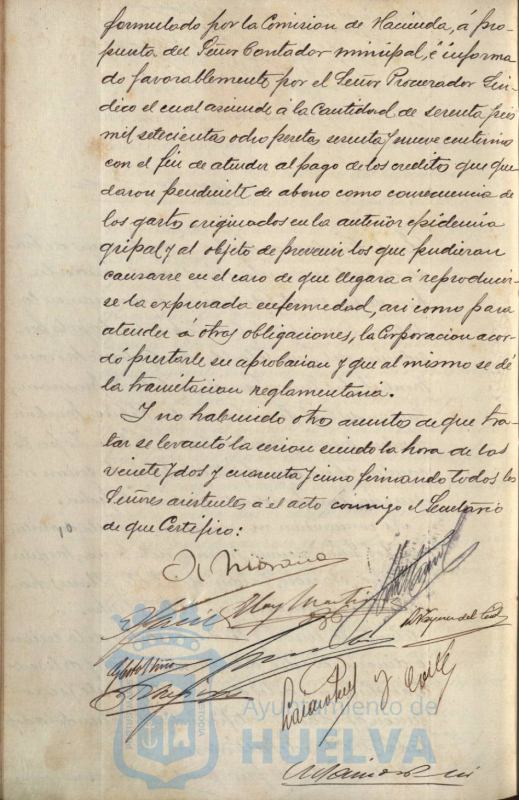 formulado por la Comision de Hacienda, á pro-
puesta del Señor Contador municipal, é informa
do favorablemente por el Señor Procurador Sin-
dico el cual asciende á la Cantidad de
mil setecientas ocho pesetas sesenta y nueve centimos
con el fin de atender al pago de los creditos que que
daron pendiente de abono como consecuencia de
los gastos originados en la anterior epidemia
gripal y al objeto de prevenir los que pudieran
causarse en el caso de que llegara á reproducir-
se la expresada enfermedad, asi como para
atender á otras obligaciones, la Corporacion acor-
dó prestarle su aprobacion y que al mismo se dé
la tramitacion reglamentaria.
Y no habiendo otros asuntos de que tra-
tar se levantó la cesion siendo la hora de las
veinte y dos y cuarenta y cinco firmando todos los
Señores asistentes á el acto conmigo el Secretario
de que Certifico:
Ayuntamiento de
HUELVA